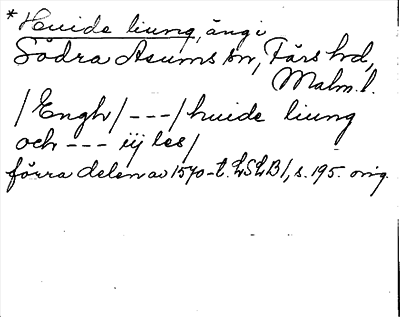 * Huide liung, äng i
Södra Åsums sn, Färs hd,
Malm. l.
/Engh/ --- / huide liung
och --- iij les/
förra delen av 1570-t. LSLB1, s. 195. orig.